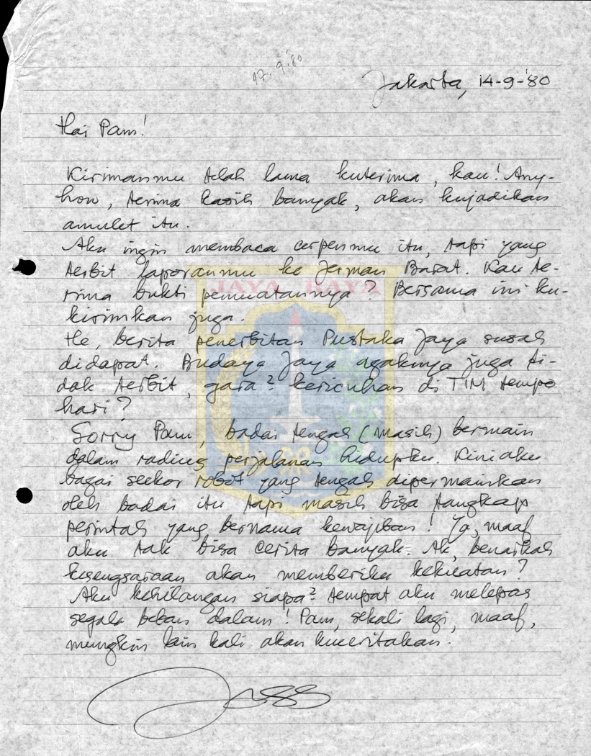 07.9.'80
Jakarta, 14-9-'80
Hai Pam!
Kirimanmu telah lama kuterima, kau! Any-
how, terima kasih banyak, akan kujadikan
amulet itu.
Aku ingin membaca cerpenmu itu, tapi yang
terbit laporanmu ke Jerman Barat. Kau te-
rima bukti pemuatannya? Bersama ini ku-
kirimkan juga.
JAYA RAYA
He, berita penerbitan Pustaka Jaya susah
didapat. Budaya Jaya agaknya juga ti-
dak terbit, gara2 kericuhan di TIM tempo
hari?
Sorry Pam, badai tengah (masih) bermain
dalam radius perjalanan hidupku. Kini aku
bagai seekor robot yang tengah dipermainkan
oleh badai itu tapi masih bisa tangkap
perintah yang bernama kewajiban! Ya, maaf
aku tak bisa cerita banyak. Ah, benarkah
kesengsaraan akan memberiku kekuatan?
Aku kehilangan siapa2 tempat aku melepas
segala beban dalam! Pam, sekali lagi, maaf,
mungkin lain kali akan kuceritakan.